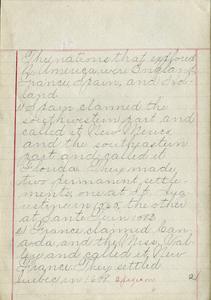 The nations that explored
America were England,
France, Spain, and Hol-
land.
Spain claimed the
southwestern part and
called it New Mexico
and the southeastern
part and called it
Florida. They made
two permanent settle-
ments, one at St. Augus-
tine in 1565, the other
at Santa Fe in 1582
France claimed Can-
ada, and the Miss. Val-
ley and called it New
France. They settled
Quebec in 1608
2